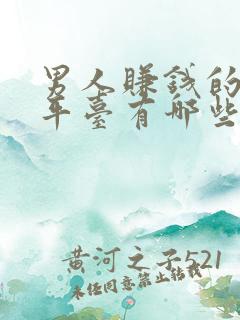 男人賺錢的
平臺有哪些
黄河之子521
未经同意禁止转载